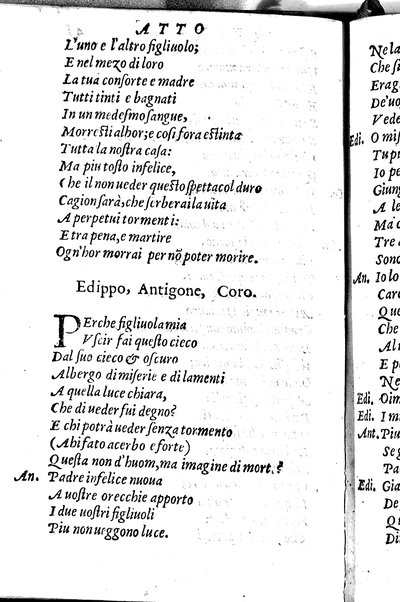 ATTO
L'uno e l'altro figliuolo;
E nel mezo di loro
La tua consorte e madre
Tutti tinti e bagnati
In un medesmo sangue,
Morresti alhor; e cosi fora estinta
Tutta la nostra casa:
Ma piu tosto infelice,
Che il non ueder questo spettacol duro
Cagion sarà, che serberai la uita
A perpetui tormenti:
E tra pena, e martire
Ogn'hor morrai per nõ poter morire.
Edippo, Antigone, Coro.
PErche figliuola mia
Vscir fai questo cieco
Dal suo cieco & oscuro
Albergo di miserie e di lamenti
A quella luce chiara,
Che di ueder fui degno?
E chi potrà ueder senza tormento
(Ahi fato acerbo e forte)
Questa non d'huom, ma imagine di mort.?
An. Padre infelice nuoua
A uostre orecchie apporto
I due uostri figliuoli
Piu non ueggono luce.
Ne la
Che si
Erag
De'uo
Edi. O mis
Tu pu
Io pe
Giun
A le
Ma c
Tre
Sono
An. Io lo
Car
Que
Che
Al
E p
Ne
Edi. Oim
Edi. I m
Ant. Piu
Seg
Pa
Edi. Gia
De
Qu
Di